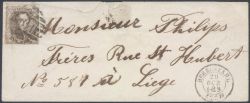 Monsieur Philips
Frères Rue St Hubert
No 551 à Liege